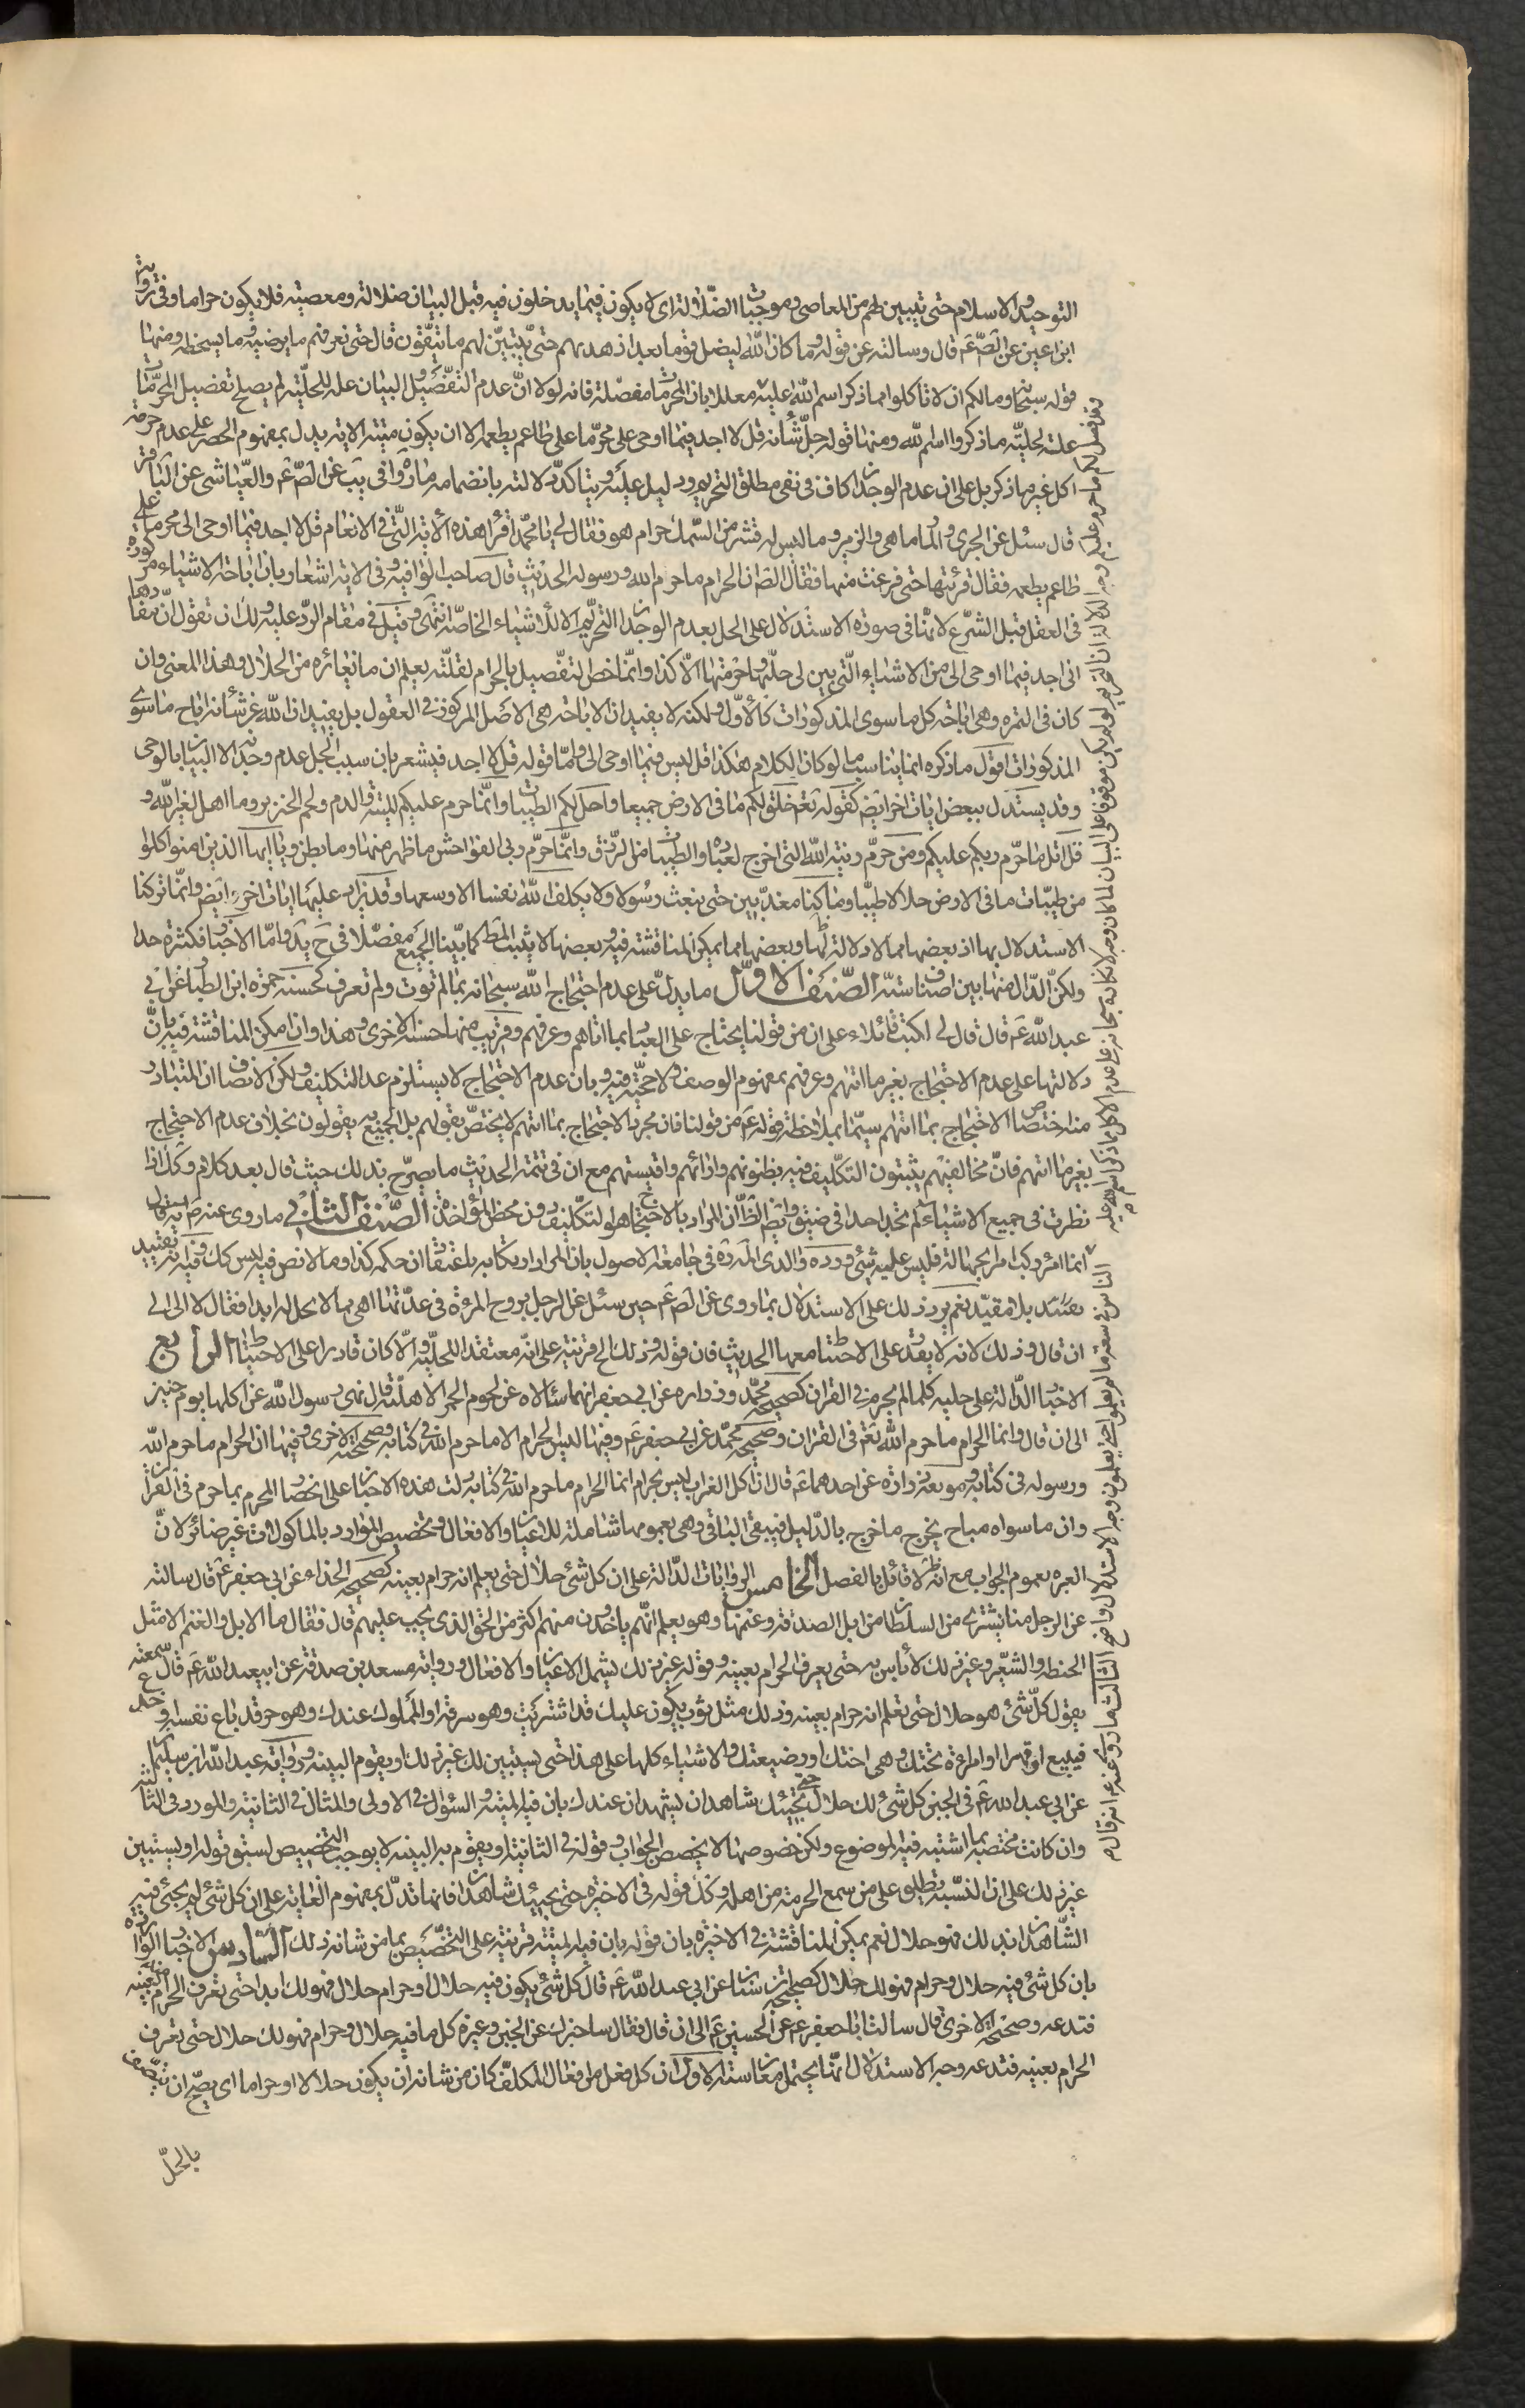 التوحيد والاسلام حتى يتبين لهم من المعاصى وموجبات الضلالة اى لا يكون فيما يدخلون فيه قبل البيان ضلالته ومعصيته فلا يكون حراما وفى رواية
ابن اعين عن الصّ عَ قال وسالته عن قوله وما كان اللّه ليضل قوما بعد اذ هديهم حتى يتبيّن لهم ما يتّقون قال حتى نعرفهم ما يرضيه وما يسخطه ومنها
قوله سبحانه ومالكم ان لا تاكلوا مما ذكر اسم اللّه عليه معللا بان المحرمات مفصّلة فانه لولا انّ عدم التفصيل والبيان علة للحلّية لم يصلح تفصيل المحرّمات
علة لحليّة ما ذكروا اسم للّه ومنها قوله جلّ شأنه قل لا اجد فيما اوحى على محرّما على طاعم يطعمه الا ان يكون ميتة الاية يدل بمفهوم الحصر على عدم حرمة
اكل غير ما ذكر بل على ان عدم الوجدان كاف فى نفى مطلق التحريم ودليل عليه ويتاكد دلالته بانضمام ما رواه فى يَب عن الصّ عَ والعيّاشى عن الباقر
قال سئل عن الجرى والمارماهى والزمير وما ليس له قشر من السّمك حرام هو فقال لى يا محمّد اقرأ هذه الأية الّتى فى الانعام قل لا اجد فيما اوحى الى محرما على
طاعم يطعمه فقال قرئتها حتى فرغت منها فقال الصّ ان الحرام ما حرم اللّه ورسوله الحديث قال صاحب الوافيه وفى الاية اشعار بان اباحة الاشياء مركوزة
فى العقل قبل الشرع لانها فى صورة الاستدلال على الحل بعدم الوجدان التحريم الا للاشياء الخاصّة انتهى وقيل فى مقام الردّ عليه ولك ان تقول انّ مفادها
انى اجد فيما اوحى الى من الاشياء الّتى بين لى حلّها وحرمتها الّا كذا وانما خص التفصيل بالحرام لقلّته يعلم ان ما يغائره من الحلال وهذا المعنى وان
كان فى الثمرة وهى اباحة كل ما سوى المذكورات كالأوّل ولكنه لا يفيد ان الاباحة هى الاصل المركوز فى العقول بل يفيد ان اللّه عز شأنه اباح ما سوى
المذكورات اقول ما ذكره انما يناسب ما لو كان الكلام هكذا قل ليس فيما اوحى الى وامّا قوله قل لا اجد فيشعر بان سبب الحل عدم وجدانه الا البيان بالوحى
وقد يستدل ببعض ايات اخر ايضَ كقوله تَعَ خلق لكم ما فى الارض جميعا واحل لكم الطيبات وانّما حرم عليكم الميتة والدم ولحم الخنزير وما اهل لغير اللّه و
قل اتل ما حرّم ربكم عليكم ومن حرّم زينة اللّه التى اخرج لعباده والطيبات من الرّزق وانّما حرّم ربى الفواحش ما ظهر منها وما بطن ويا ايها الذين امنوا كلوا
من طيّبات ما فى الارض حلالا طيّبا وما كنا معذّبين حتى نبعث رسولا ولا يكلف اللّه نفسا الا وسعها وقد يزاد عليها ايات اخرى ايضَ وانّما تركنا
الاستدلال بها اذ بعضها مما لا دلالة لها وبعضها مما يمكن المناقشة فيه وبعضها لا يثبت المطَ كما بيّنا الجميع مفصّلا فى حَ يَد وامّا الاخبار فكثيرة جدا
ولكن الدّال منها بين اصناف ستّة الصّنف الاوّل ما يدلّ على عدم احتجاج اللّه سبحانه بما لم تؤت ولم تعرف كحسنة حمزة ابن الطيار عن ابى
عبد اللّه عَ قال قال لى اكتب فاملاء على ان من قولنا يحتاج على العباد بما اتاهم وعرفهم وقريب منها حسنة الاخرى وهذا وان امكن المناقشة فيه بانّ
دلالتها على عدم الاحتجاج بغير ما اتهم وعرفهم بمفهوم الوصف ولا حجّية فيه وبان عدم الاحتجاج لا يستلزم عد التكليف ولكن الانصاف ان المتبادر
منه اختصاص الاحتجاج بما اتهم سيّما بملاحظة قوله عَ من قولنا فان مجرد الاحتجاج بما اتهم لا يختصّ بقولهم بل الجميع به يقولون بخلاف عدم الاحتجاج
بغير ما اتهم فانّ مخالفيهم يثبتون التكليف فيه بظنونهم وارائهم واقيستهم مع ان فى تتمة الحديث ما يصرّح بذلك حيث قال بعد كلام وكك اذا
نظرت فى جميع الاشياء لم تجد احدا فى ضيق وايضَ الظّ ان المراد بالاحتجاج هو التكليف دون محض المؤاخذة الصّنف الثانى ما روى عنه صَ انه قال
انما امرؤ ركب امرا بجهالة فليس عليه شئ ورده والدى العلامة ره فى جامعة الاصول بان المراد ارتكابه باعتقاد ان حكمه كذا وما لا نص فيه ليس كك وفيه انه تقييد
بلا مقيّد نعم يرد ذلك على الاستدلال بما روى عن الصَ عَ حين سئل عن الرجل يزوج المرءة فى عدّتها اهى مما لا يحل له ابدا فقال لا الى
ان قال وذلك لانه لا يقدر على الاحتياط معها الحديث فان قوله وذلك الخ قرينة على انّه معتقد اللحلّية والّا كان قادرا على الاحتياط الرابع
الاخبار الدّالة على حلية كلما لم يحرم فى القران كصحيحة محمّد وزراره عن ابى جعفر انهما سئالاه عن لحوم الحمر الاهلّية قال نهى رسول اللّه عن اكلها يوم خيبر
الى ان قال وانما الحرام ما حرم اللّه تَعَ فى القران وصحيحة محمّد عن ابى جعفر عَ وفيها ليس الحرام الا ما حرم اللّه فى كتابه وصحيحة الاخرى وفيها ان الحرام ما حرم اللّه
ورسوله فى كتابه وموثقة زرارة عن احدهما عَ قال ان اكل الغراب ليس بحرام انما الحرام ما حرم اللّه فى كتابه دلت هذه الاخبار على انحصار المحرم بما حرم فى القران
وان ما سواه مباح يخرج ما خرج بالدّليل فيبقى الباقى وهى بعمومها شاملة للاعيان والافعال وتخصيص الموارد بالماكولات غير ضائر لانّ
العبرة بعموم الجواب مع انه ظَ لا قائل بالفصل الخامس الروايات الدّالة على ان كل شئ حلال حتى يعلم انه حرام بعينه كصحيحة الحذاء عن ابى جعفر عَ قال سالته
عن الرجل منا يشترى من السلطان من ابل الصدقة وغنمها وهو يعلم انّهم ياخذون منهم اكثر من الحق الذى يجب عليهم قال فقال ما الابل والغنم الا مثل
الحنطة والشعير وغير ذلك لا بأس به حتى يعرف الحرام بعينه وقوله غير ذلك يشمل الاعيان والافعال ورواية مسعدة بن صدقة عن ابيعبد اللّه عَ قال سمعته
يقول كلّ شئ هو حلال حتى تعلم انه حرام بعينه وذلك مثل ثوب يكون عليك قد اشتريته وهو سرقة او المملوك عندك وهو حر قد باع نفسه او خدع
فيبيع او قهر او امراءة تحتك وهى اختك او رضيعتك والاشياء كلها على هذا حتى يستبين لك غير ذلك او يقوم البينة ورواية عبد اللّه ابن سليمان
عن ابى عبد اللّه عَ فى الجبن كل شئ لك حلال حتى يجيئك شاهدان يشهدان عندك بان فيه الميتة والسئوال فى الاولى والمثال فى الثانية والمورد فى الثالثة
وان كانت مختصة بما اشتبه فيه الموضوع ولكن خصوصها لا يخصص الجواب وقوله فى الثانية او يقوم به البينة لا يوجب التخصيص لسبق قوله او يستبين
غير ذلك على ان النسّبة يطلق على من سمع الحرمة من اهله وكذا قوله فى الاخيرة حتى يجيئك شاهدان فانها تدلّ بمفهوم الغاية على ان كل شئ لم يجئى فيه
الشّاهدان لك فهو حلال نعم يمكن المناقشة فى الاخيرة بان قوله بان فيه الميتة قرينة على التخصيص بما من شانه ذلك السّادس الاخبار الواردة
بان كل شئ فيه حلال وحرام فهو لك حلال كصحيحة ابن سنان عن ابى عبد اللّه عَ قال كل شئ يكون فيه حلال وحرام حلال فهو لك ابدا حتى تعرف الحرام منه بعينه
فتدعه وصحيحة الاخرى قال سالت ابا جعفر عَ عن الجبن الى ان قال فقال ساخبرك عن الجبن وغيره كل ما فيه حلال وحرام فهو لك حلال حتى تعرف
الحرام بعينه فتدعه وجه الاستدلال انها يحتمل معان ستة الاول ان كل فعل من افعال المكلف كان من شانه ان يكون حلالا او حراما اى يصحّ ان يتّصف
بالحلّ
وقد فصل لكم ما حرم عليكم وجه الدلالة ان التحريم لو لم يكن موقوفا على البيان لما كان وجه لانكاره سبحانه على عدم الاكل مما ذكر اسم اللّه عليه
الناس فى سعة ما لم يعلموا حتى يعلموا وجه الاستدلال واضح الثالث ما روى عنه عَ انه قال